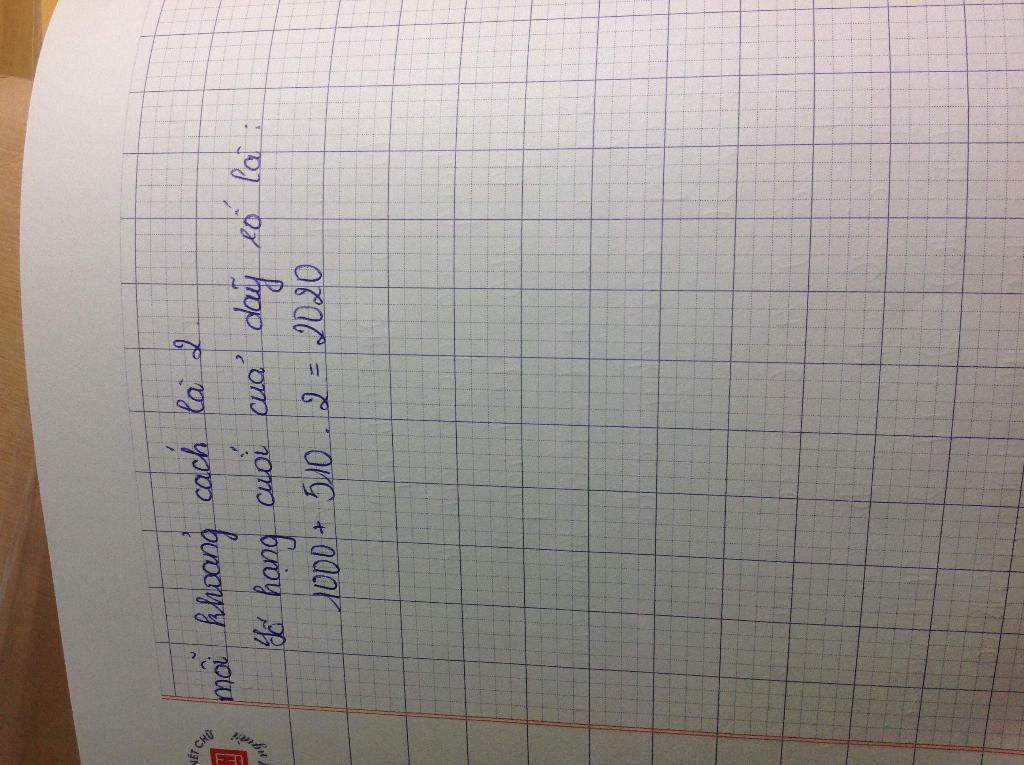 mỗi khoảng cách là 2.
Số hạng cuối của dãy số là:
1000 + 510 . 2 = 2020
NÉT CHỮ